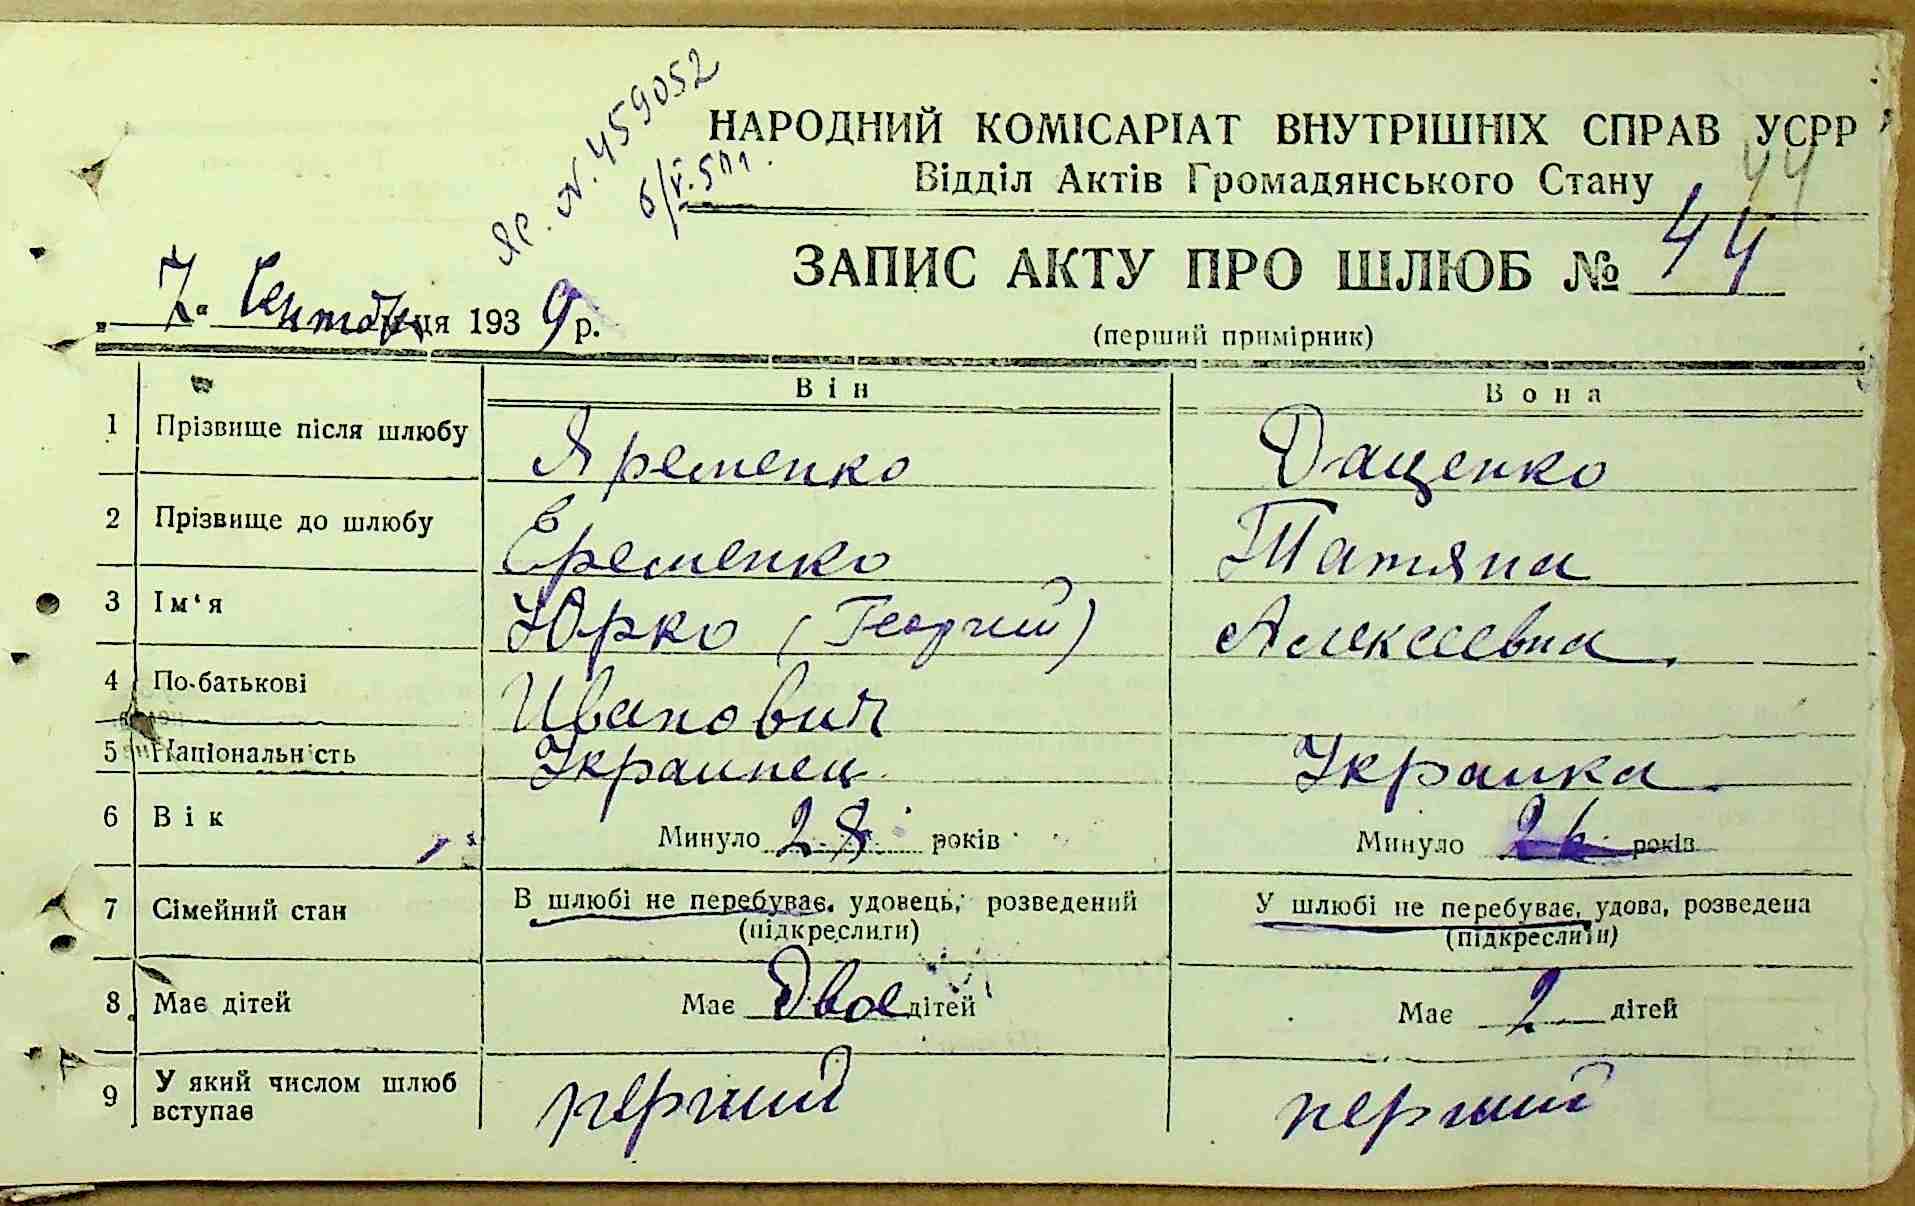 Яр. N. 459052
6/V. 51 г.
НАРОДНИЙ КОМІСАРІАТ ВНУТРІШНІХ СПРАВ УСРР
Відділ Актів Громадянського Стану
44
ЗАПИС АКТУ ПРО ШЛЮБ № 44
„7“ Сентября 1939 р.
(перший примірник)
Він Вона
1 Прізвище після шлюбу Яременко Даценко
2 Прізвище до шлюбу Еременко Татяна
3 Ім‘я Юрко (Георгий) Алексеевна
4 По-батькові Иванович
5 Національність Украинец Украинка
6 Вік Минуло 28 років Минуло 26 років
7 Сімейний стан В шлюбі не перебуває, удовець, розведений У шлюбі не перебуває, удова, розведена
(підкреслити) (підкреслити)
8 Має дітей Має двое дітей Має 2 дітей
9 У який числом шлюб вступає перший перший